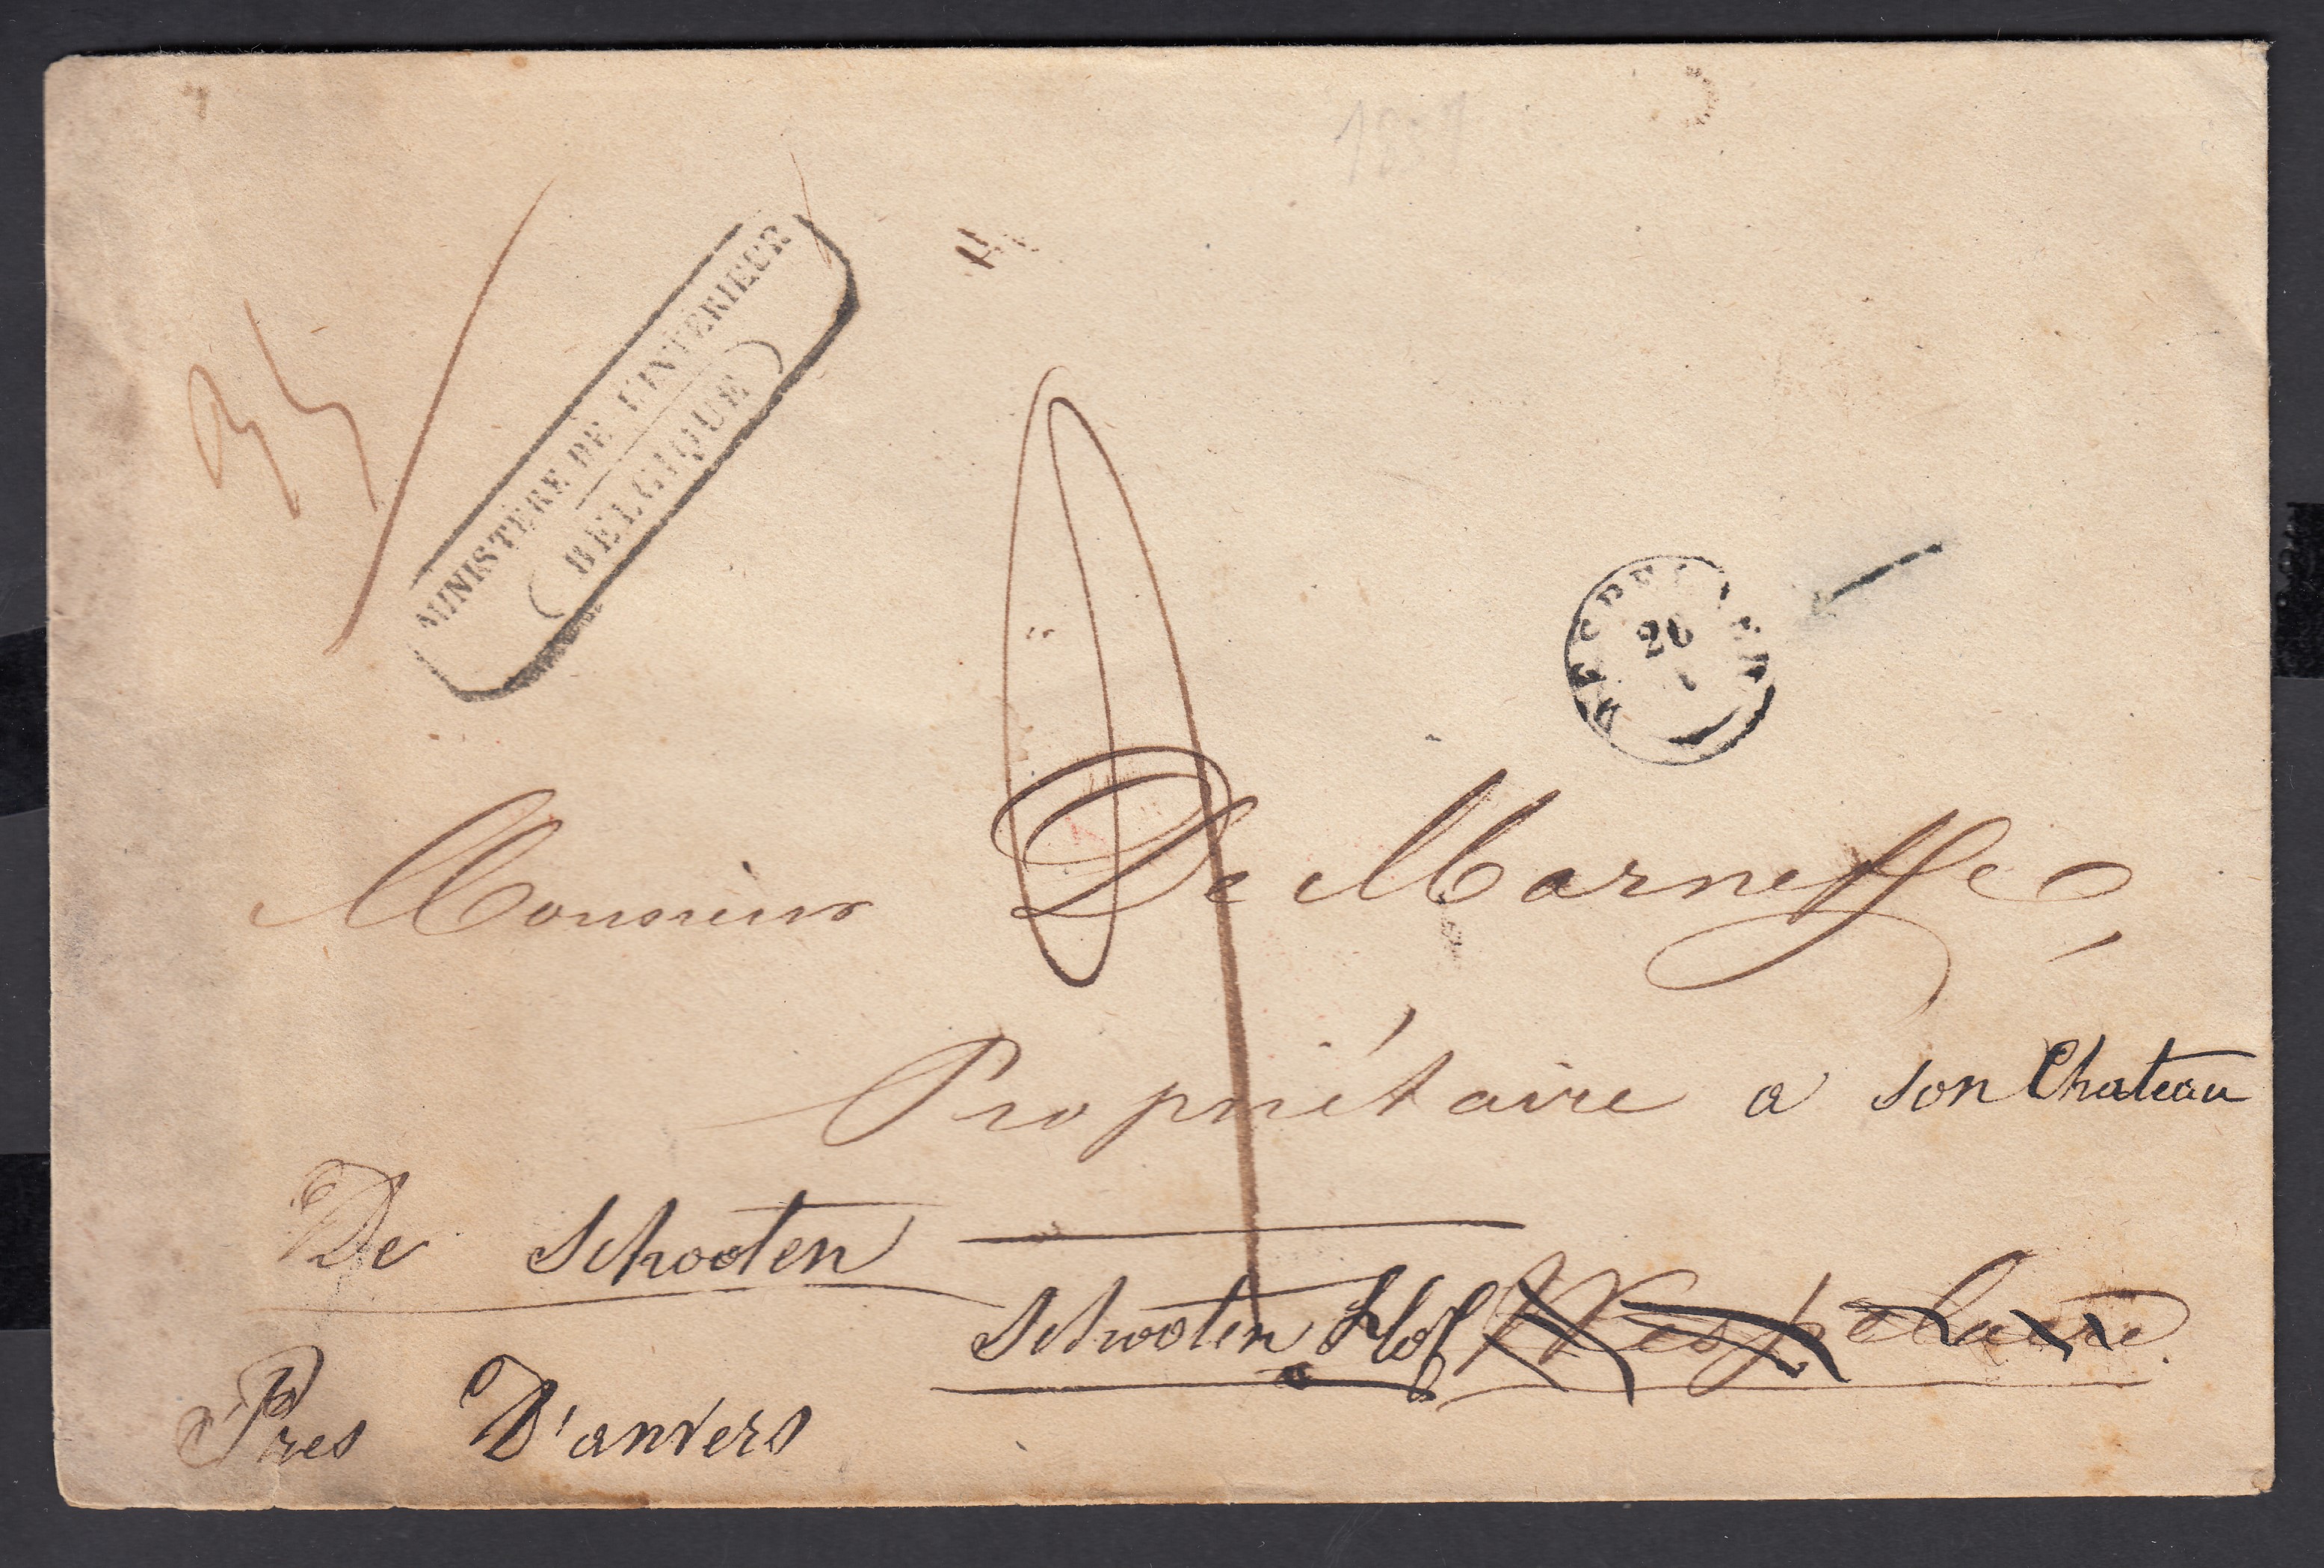 MINISTÈRE DE L'INTÉRIEUR
BELGIQUE
26
Monsieur De Marneffe
Propriétaire a son Chateau
De Schooten
Schooten Hof Wespelaere
Pres D'anvers